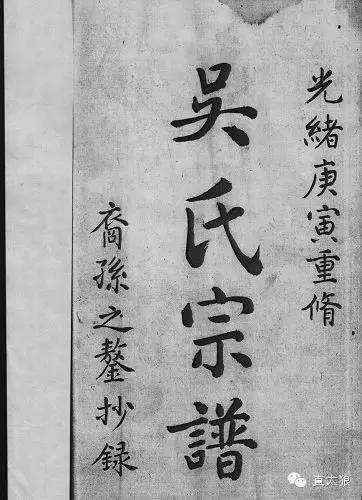 光緒庚寅重脩
吳氏宗譜
裔孫之鏊抄録
直太狼